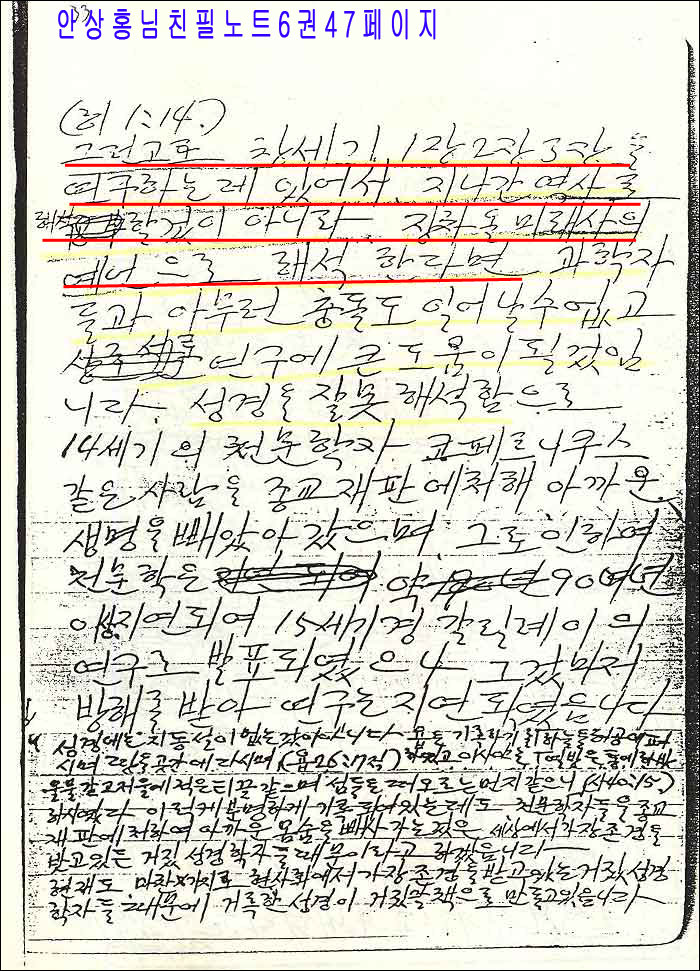 33
안상홍님친필노트6권47페이지
(히 1:14.)
그런고로 창세기 1장2장3장을
연구하는데 있어서 지나간 역사를
해석할것이 아니라 장차 올 미래사의
예언으로 해석 한다면 과학자
들과 아무런 충돌도 일어날수없고
연구에 큰 도움이 될것임
니다. 성경을 잘못 해석함으로
14세기의 천문학자 코페르니쿠스
같은 사람을 종교재판에처해 아까운
생명을 빼았아 갔으며, 그로 인하여
천문학은 약 90여년
이상지연되여 15세기경 갈릴레이의
연구로 발표되였으나 그것마저
방해를 받아 연구는지연되였읍니다
성경에는 지동설이 없는것이아니다 하늘을허공에펴
시며 땅을공간에다시며 (욥26:7적) 하였고 이사야는 열방은
물물같고저울에적은티끌같으며 섬들은떠오르는먼지같으니 (사40:15.)
하시였다 이렇게분명하게 기록되여있는데도 천문학자들을 종교
재판에처하여 아까운 목숨을빼사가는것은 세상에서가장존경을
받고있든 거짓 성경학자들때문이라고 하겠읍니다
현재도 마찬가지로 현사회에서가장존경을받고있는거짓성경
학자들때문에 거룩한성경이 거짓말책으로 만들고있읍니다